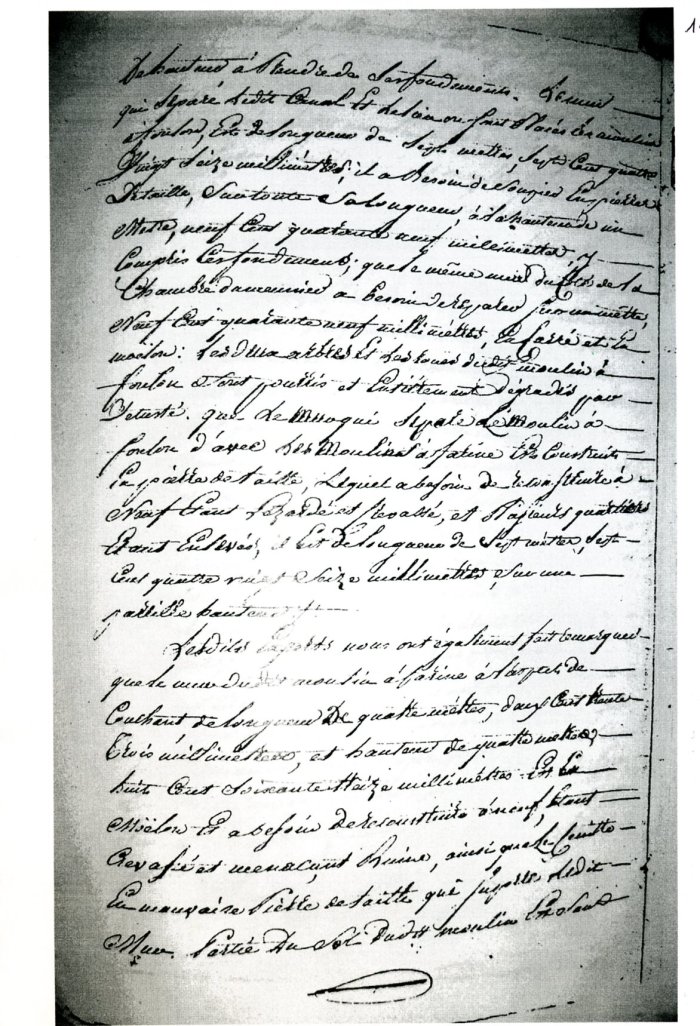 De hauteur à prendre de ses fondements. Le mur
qui séparé ledit Canal Et le lieu ou sont Placés les moulin
à foulon, Est de longueur de sept mettres, sept Cent quatre
Vingt Seize millimètres; il a Besoin de En pierre
De taille, Sur toute Sa longueur, à la hauteur de un
Mettre, neuf Cent quarante neuf millimettres, y
Compris les fondements; que le même mur du Côté de la
Chambre du meunier a besoin de reparer sur un mettre,
Neuf Cent quarante neuf millimettres, En carré et En
moilon: Les deux arbres Et Les roues dudit moulin à
foulon Sont pourris et Entièrement dégradés par
Vetusté. que Le Mur qui Separe Le Moulin à
foulon d'avec Les Moulins à farine Est Construit
En pierre de taille, Lequel a besoin de reconstruire à
Neuf Etant Lezardé et Crevassé, et Plusieurs quartiers
Etant Enlevés, il Est De longueur de Sept metres, Sept
Cent quatre vingt Seize millimettres, sur une
pareille hauteur
Lesdits experts nous ont également fait remarquer
que le mur dudit moulin à farine à l'aspect de
Couchant de longueur De quatre mètres, deux Cent trente
Trois millimettres, et hauteur de quatre mettres
huit Cent Soixante treize millimètres Est En
Moëlon Et a besoin de reconstruire à neuf, Etant
Crevassé et menaçant Ruine, ainsi que le
En mauvaise Pierre de taille qui supporte Ledit
Mur. Partie Du Sol Dudit moulin Est